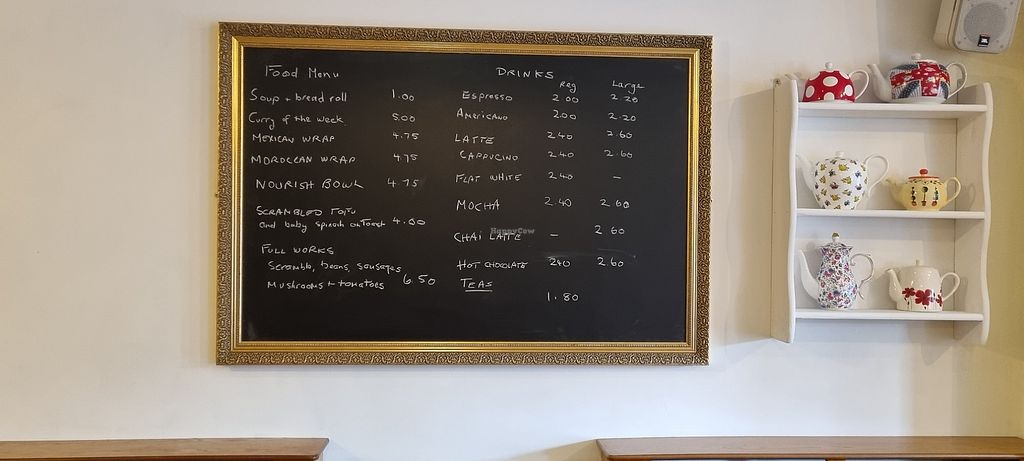 Food Menu
Soup + bread roll 1.00
Curry of the week 5.00
MEXICAN WRAP 4.75
MOROCCAN WRAP 4.75
NOURISH BOWL 4.75
SCRAMBLED TOFU
and baby spinach on Toast 4.00
FULL WORKS
Scramble, beans, sausages,
Mushrooms + tomatoes 6.50
DRINKS
Reg Large
Espresso 2.00 2.20
Americano 2.00 2.20
LATTE 2.40 2.60
CAPPUCINO 2.40 2.60
FLAT WHITE 2.40 –
MOCHA 2.40 2.60
CHAI LATTE – 2.60
HOT CHOCOLATE 2.40 2.60
TEAS
1.80
HappyCow
JBL